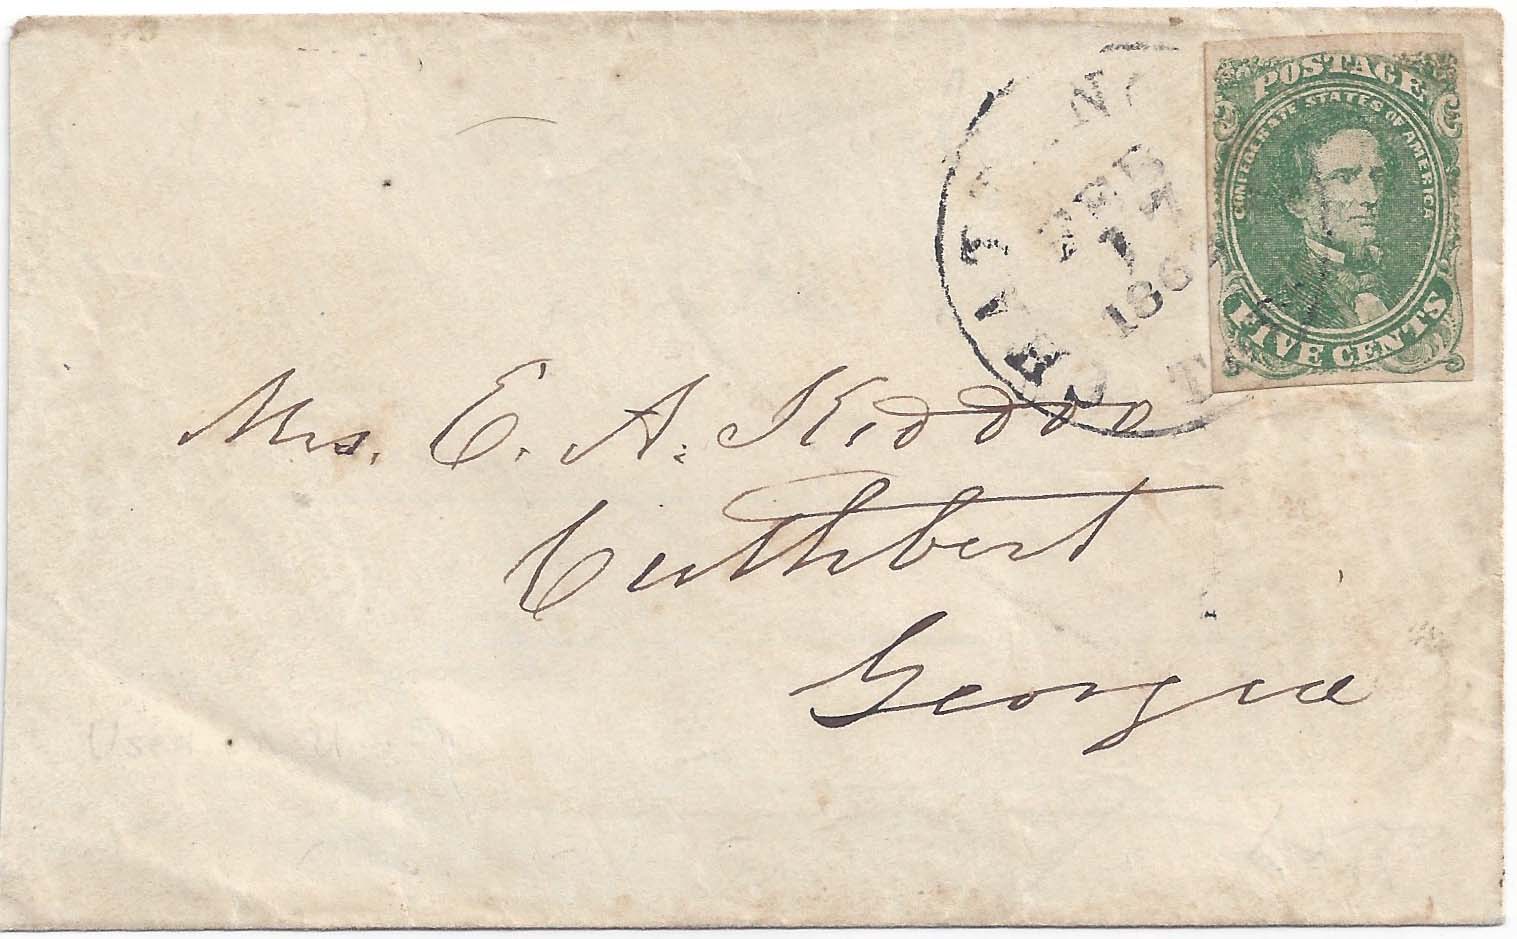 POSTAGE
CONFEDERATE STATES OF AMERICA
FIVE CENTS
FEB
17
186
Mrs. E. A. Kiddoo
Cuthbert
Georgia